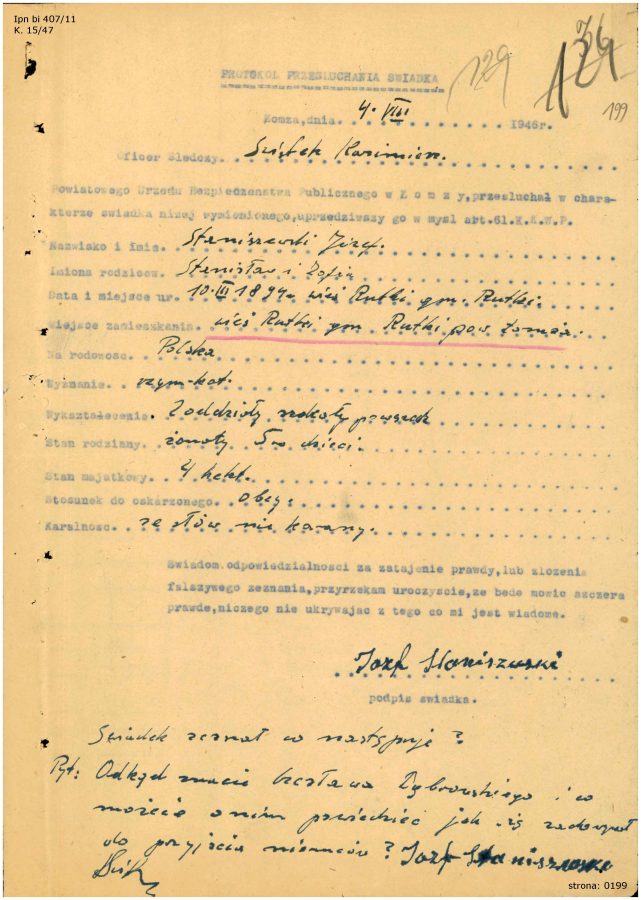 Ipn bi 407/11
K. 15/47
129
199
PROTOKOL PRZESLUCHANIA SWIADKA
Lomza, dnia. 4. VIII 1946r.
Oficer Sledczy. Świstek Kazimierz.
Powiatowego Urzedu Bezpieczenstwa Publicznego w Ł o m z y, przesluchal w chara-
kterze swiadka nizej wymienionego, uprzedziwszy go w mysl art.61.K.K.W.P.
Nazwisko i imie. Staniszewski Józef.
Imiona rodzicow. Stanisław i Zofia
Data i miejsce ur. 10.III 1894r. wieś Rutki gm. Rutki.
Miejsce zamieszkania. wieś Rutki gm Rutki pow Łomża.
Narodowosc. Polska
Wyznanie. rzym-kat.
Wyksztalcenie. 2 oddziały szkoły powszech
Stan rodzinny. żonaty 5-o dzieci.
Stan majatkowy. 4 hekt.
Stosunek do oskarzonego. obcy.
Karalnosc. ze słów nie karany.
Swiadom odpowiedzialnosci za zatajenie prawdy, lub zlozenia
falszywego zeznania, przyrzekam uroczyscie, ze bede mowic szczera
prawde, niczego nie ukrywajac z tego co mi jest wiadome.
Jozf Staniszeski
podpis swiadka.
Świadek zeznał co następuje?
Pyt: Odkąd znacie Czesława Dąbrowskiego i co
możecie o nim powiedzieć jak się zachowywał
do przyjścia niemców? Jozf Staniszeski
strona: 0199